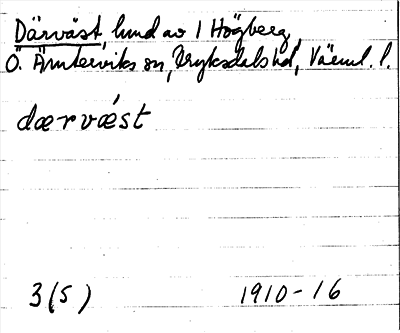 Därväst, lund av 1 Högberg,
Ö. Ämterviks sn, Fryksdals hd, Värml. l.
dærvǽst
3(5) 1910-16